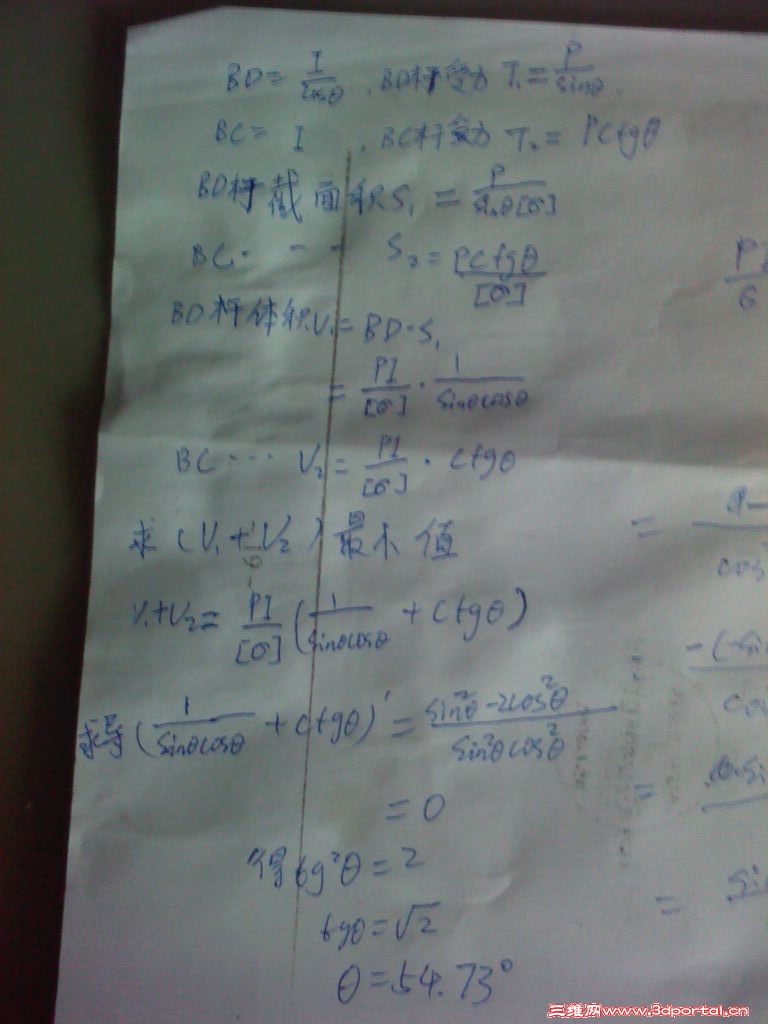 BD = I/cosθ , BD杆受力 T₁ = P/sinθ
BC = I , BC杆受力 T₂ = Pctgθ
BD杆截面积S₁ = P/sinθ[σ]
BC - - - S₂ = Pctgθ/[σ]
BD杆体积V₁ = BD·S₁
= PI/[σ] · 1/sinθcosθ
BC ··· V₂ = PI/[σ] · ctgθ
求(V₁+V₂)最小值
V₁+V₂ = PI/[σ] (1/sinθcosθ + ctgθ)
求导(1/sinθcosθ + ctgθ)' = sin²θ-2cos²θ/sin²θcos²θ
= 0
得 tg²θ = 2
tgθ = √2
θ = 54.73°
三维网www.3dportal.cn